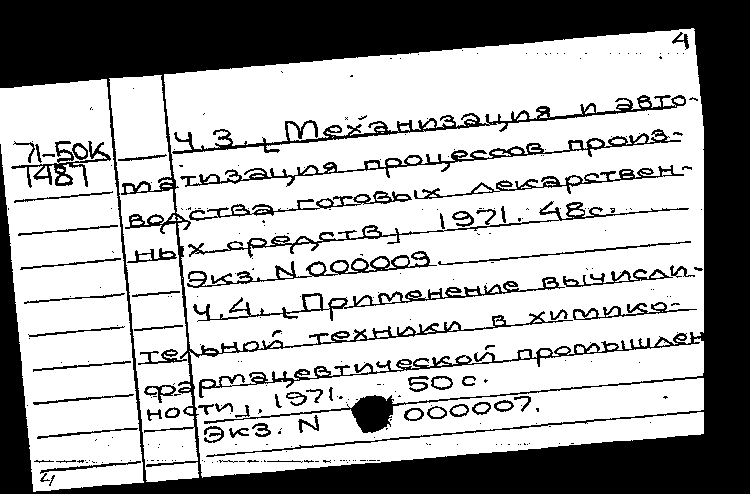 4
71-50К
1487
Ч.3. [Механизация и авто-
матизация процессов произ-
водства готовых лекарствен-
ных средств]. 1971. 48с.
Экз. N 000009.
Ч.4. [Применение вычисли-
тельной техники в химико-
фармацевтической промышлен
ности]. 1971. 50с.
Экз. N 000007.
4